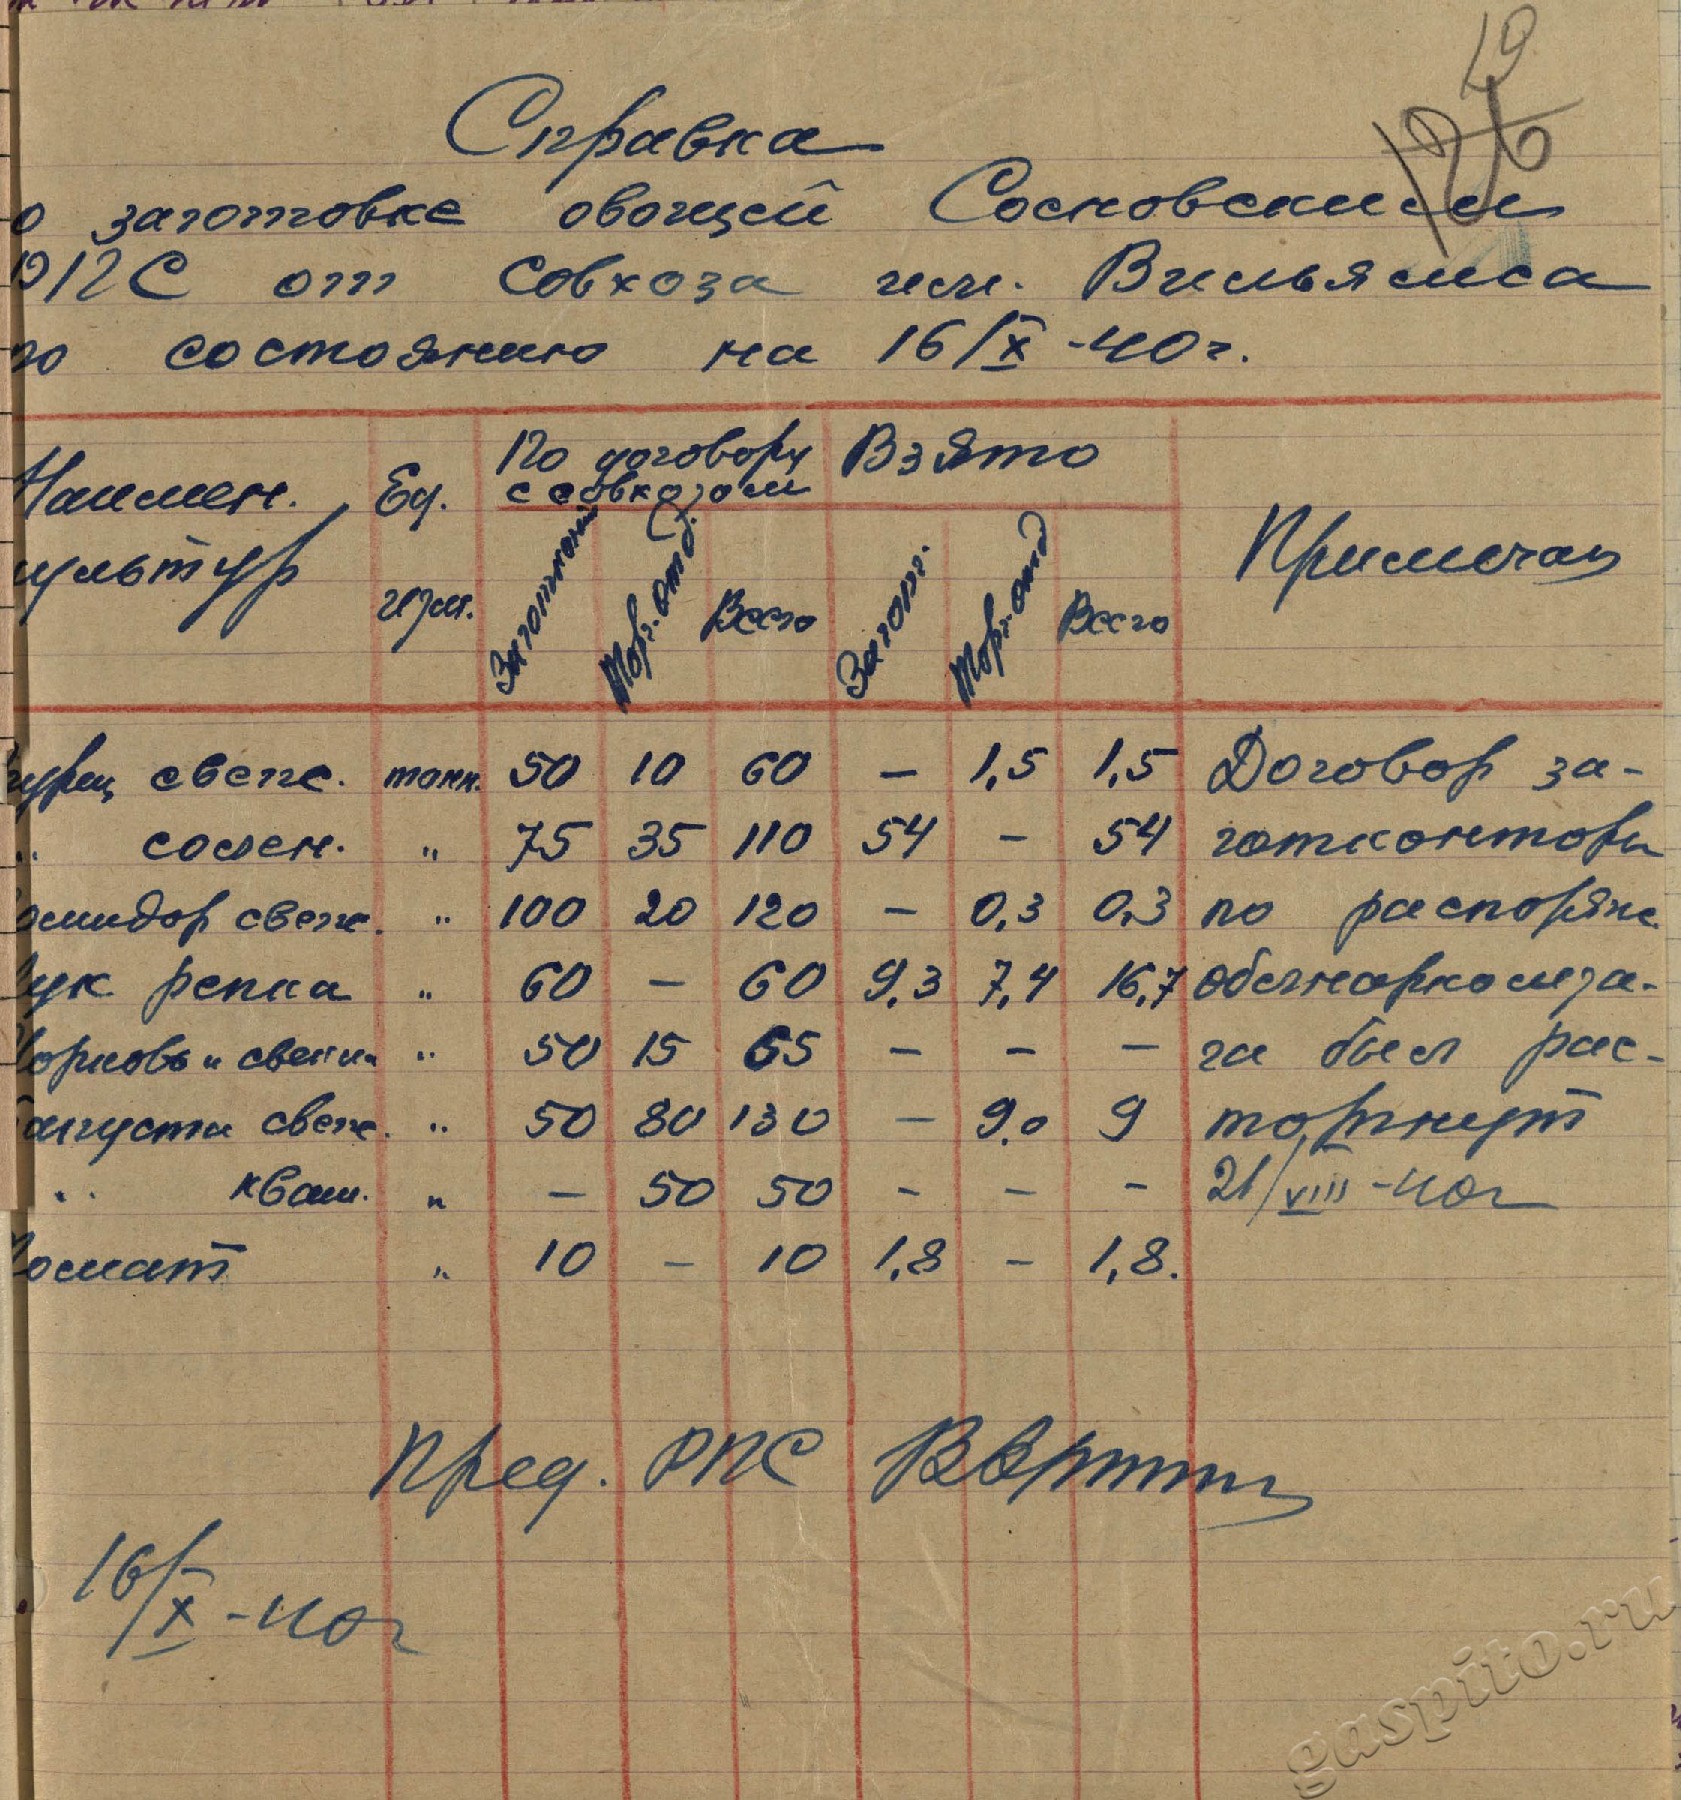 19
126
Справка
о заготовке овощей Сосновским
РПС от совхоза им. Вильямса
по состоянию на 16/X -40г.
Наимен. культур | Ед. изм. | По договору с совхозом | Взято | Примечан
Заготконт | Торг. отд. | Всего | Заготт. | Торг. отд | Всего
гурец свеж. тонн. 50 10 60 – 1,5 1,5 Договор за-
" солен. " 75 35 110 54 – 54 готконторы
омидор свеж. " 100 20 120 – 0,3 0,3 по распоряж.
Лук репка " 60 – 60 9,3 7,4 16,7 облнаркомза-
орковь " свежи " 50 15 65 – – – га был рас-
апуста свеж. " 50 80 130 – 9,0 9 торгнут
" кваш. " – 50 50 – – – 21/VIII -40г
Томат " 10 – 10 1,8 – 1,8.
Пред. РПС
16/X -40г
gaspito.ru